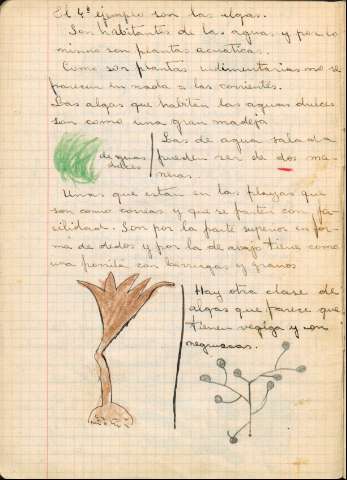 El 4º ejemplo son las algas.
Son habitantes de las aguas y por lo
mismo son plantas acuáticas.
Como son plantas rudimentarias no se
parecen en nada a las corrientes.
Las algas que habitan las aguas dulces
son como una gran madeja
de aguas
dulces
Las de agua salada
pueden ser de dos ma-
neras.
Unas que están en las playas que
son como correas y que se parten con fa-
cilidad. Son por la parte superior en for-
ma de dedos y por la de abajo tiene como
una con berrugas y granos
Hay otra clase de
algas que parece que
tienen vegiga y son
negruzcas.